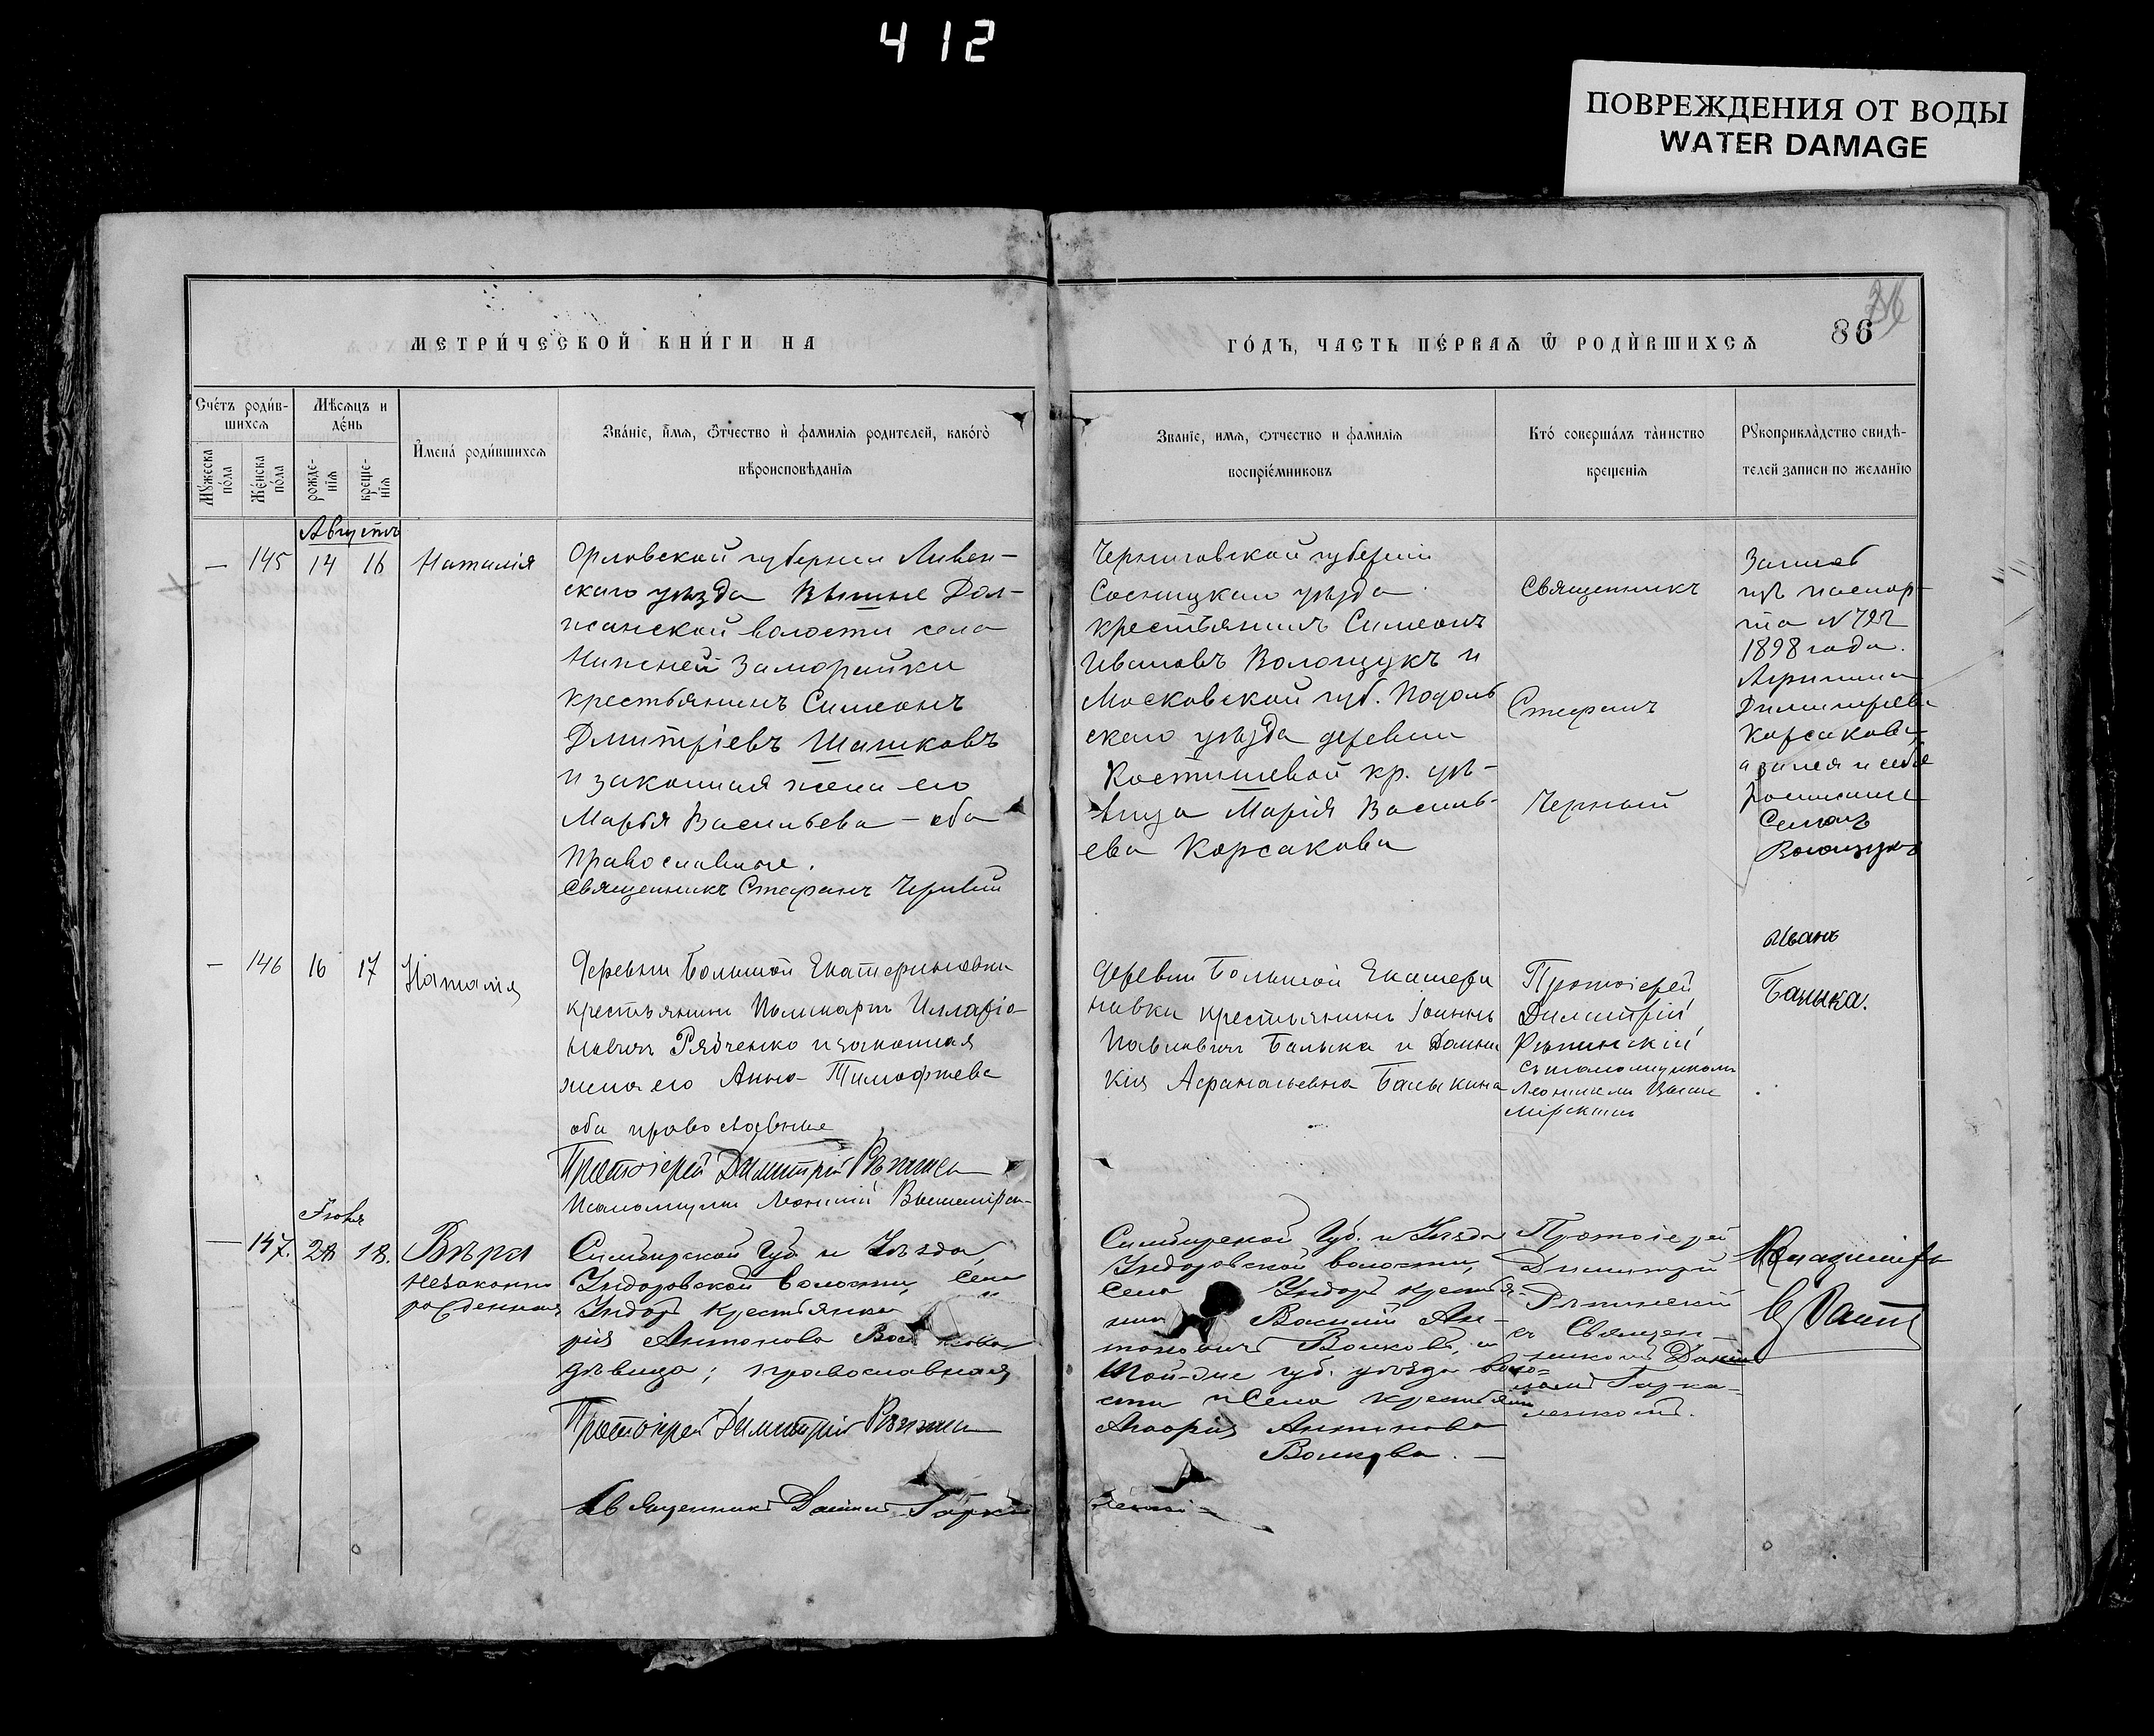 412
ПОВРЕЖДЕНИЯ ОТ ВОДЫ
WATER DAMAGE
МЕТРИ́ЧЕСКОЙ КНИ́ГИ НА
ГО́ДЪ, ЧАСТЬ ПЕ́РВАѦ Ѿ РОДИ́ВШИХСѦ
86
Счéтъ роди́в-
шихсѧ
Мѣ́сѧцъ и
дéнь
Мꙋ́жеска
по́ла
Же́нска
по́ла
рожде-
нїѧ
креще-
нїѧ
И҆мена́ роди́вшихсѧ
Зва́нїе, и҆́мѧ, ѻ҆́тчество и҆ фамилїѧ родителей, како́гѡ
вѣроисповѣданїѧ
Званїе, имѧ, ѻтчество и фамилїѧ
воспрїе́мниковъ
Кто́ соверша́лъ та́инство
крещенїѧ
Рꙋкоприкла́дство свидѣ-
телей записи по желанїю
Августъ
— 145 14 16
Наталія
Орловской губерніи Ливен-
скаго уѣзда Вышне Дол-
жанской волости села
Нижней Заморайки
крестьянинъ Симеонъ
Дмитріевъ Шашковъ
и законная жена его
Марья Васильева – оба
православные.
Священникъ Стефанъ Черный
Черниговской губерніи
Сосницкаго уѣзда
крестьянинъ Симеонъ
Ивановъ Волощукъ и
Московской губ. Подоль
скаго уѣзда деревни
Костишевой кр. дѣ-
вица Марія Василь-
ева Корсакова
Священникъ
Стефанъ
Черный
паспор-
та N
1898 года.
Димитріева
Корсакова,
Семенъ
Волощукъ
— 146 16 17
Наталія
Деревни Большой Екатериновки
крестьянинъ Поликарпъ Илларіо-
новичъ Рябченко и законная
жена его Анна Тимофѣева
оба православные
Протоіерей Димитрій Рѣпинск
Псаломщикъ Леонтій Вышемірск-
Деревни Большой Екатери
новки крестьянинъ Іоаннъ
Павловичъ Балыка и
кія Афанасьевна Балыкина
Протоіерей
Димитрій
Рѣпинскій
съ псаломщикомъ
Леонтіемъ Выше
мірскимъ
Иванъ
Балыка.
— 147. 28 18.
Вѣра
незаконно
рожденная
Симбирской Губ. и Уѣзда,
Ундоровской волости, Села
Ундоръ крестьянка
рія Антонова Вол кова
дѣвица; православная
Протоіерей Димитрій Рѣпинск
Священникъ Даніилъ Горка
Симбирской Губ. и Уѣзда
Ундоровской волости,
Села Ундоръ крестья-
нинъ Василій Ан-
тоновичъ Волковъ, и
Той-же губ. уѣзда воло-
сти и Села крестьянка
Антонова
Волкова. —
Протоіерей
Димитрій
Рѣпинскій
съ Священ-
никомъ Даніи
ломъ Горка-
ленкомъ.